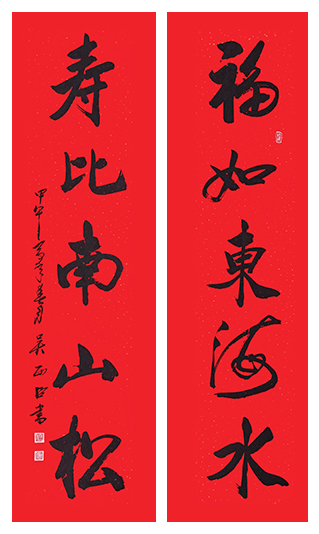 福如東海水
寿比南山松
甲午
吴
書